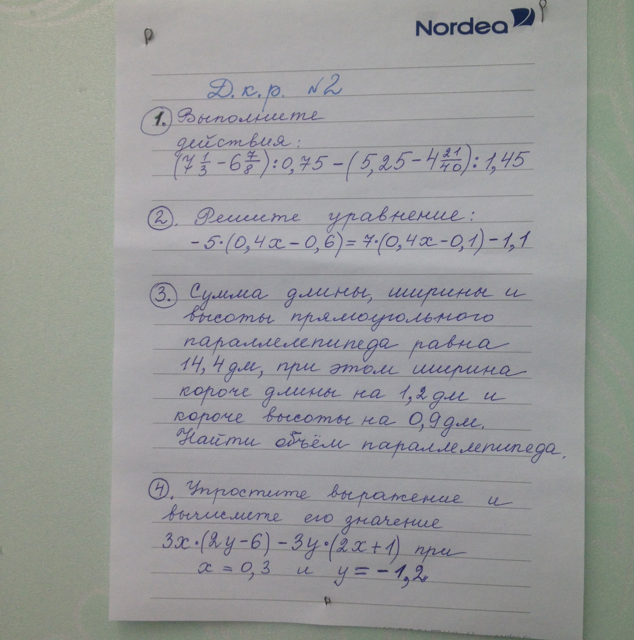 Nordea
Д.к.р. №2
1. Выполните
действия:
(7 1/3 - 6 7/8) : 0,75 - (5,25 - 4 21/40) : 1,45
2. Решите уравнение:
-5·(0,4x-0,6)=7·(0,4x-0,1)-1,1
3. Сумма длины, ширины и
высоты прямоугольного
параллелепипеда равна
14,4дм, при этом ширина
короче длины на 1,2дм и
короче высоты на 0,9дм.
Найти объём параллелепипеда.
4. Упростите выражение и
вычислите его значение
3x·(2y-6)-3y·(2x+1) при
x=0,3 и y=-1,2